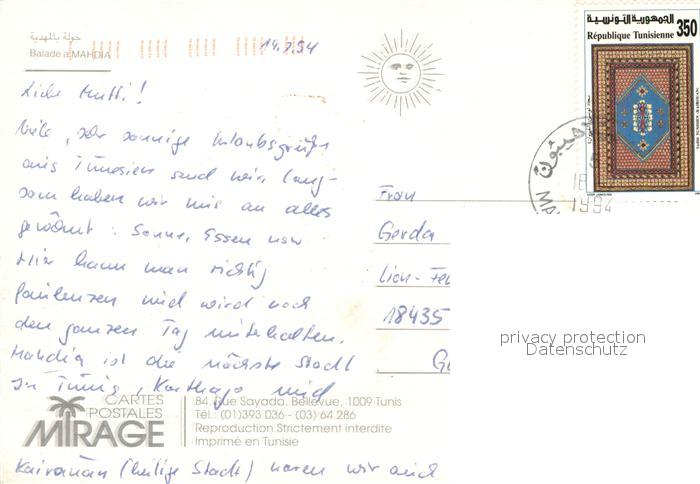 جولة بالمهدية
Balade à MAHDIA
14.7.94
Liebe Mutti!
Viele, sehr sonnige Urlaubsgrüße
aus Tunesien sind wir. Lang-
sam haben wir uns an alles
gewöhnt: Sonne, Essen usw.
Hier kann man richtig
faulenzen und wird noch
den ganzen Tag unterhalten.
Mahdia ist die nächste Stadt
In Tunis, Karthago und
Kairanan (heilige Stadt) waren wir auch
Frau
Gerda
Lion-Feu
18435
G
الجمهورية التونسية
350
République Tunisienne
18
1994
MA
privacy protection
Datenschutz
CARTES
POSTALES
MIRAGE
84, Rue Sayada, Bellevue, 1009 Tunis
Tél.: (01)393 036 - (03) 64 286
Reproduction Strictement interdite
Imprimé en Tunisie